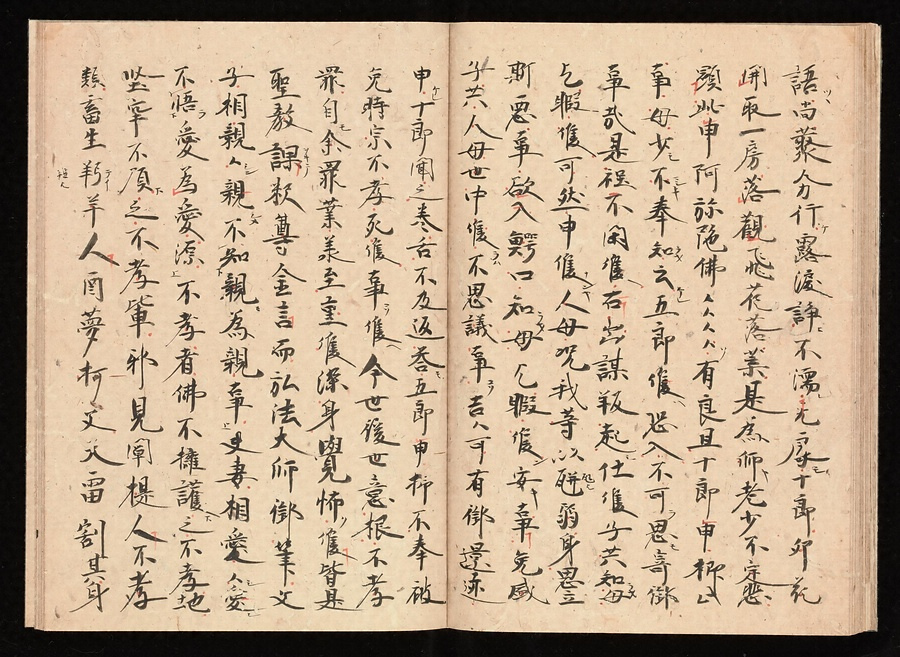 語尚蘂分行露涙諍不濡九房十郎卯花
開取一房落觀飛花落葉是為師老少不定悲
願此申阿弥陁佛〻〻〻〻有良且十郎申抑
事母少不奉知云五郎候越入不可思寄
事哉是程不閑候右出謀叛起仕候子共知母
乞暇候可然申候人母咒我等以身思立
斯惡事欲入鰐口知母乞暇候安事免
子共人母世中候不思議事吉〻可有御還迹
申十郎聞之巻舌不及返答五郎申抑不奉被
免時宗不孝死候事候今世後世意根不孝
罪自余罪業至重候潔身覺怖候皆是
聖教課教尊金言而弘法大師御筆文
子相親〻親不知親為親事夫妻相愛〻愛
不悟愛為愛漂不孝者佛不擁護之不孝地
堅牢不頂之不孝輩邪見闡提人不孝
類畜生羊人酉夢柯文天雷割其身